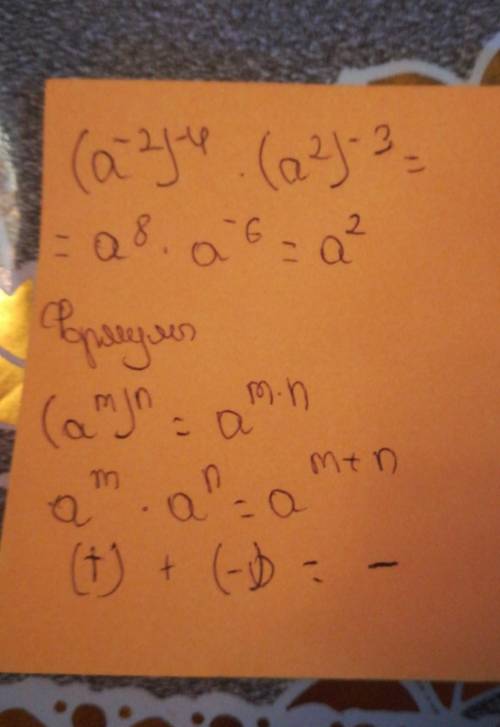 (a⁻²)⁻⁴ · (a²)⁻³ =
= a⁸ · a⁻⁶ = a²
Формулы
(aᵐ)ⁿ = aᵐ·ⁿ
aᵐ · aⁿ = aᵐ⁺ⁿ
(+) + (-) = -